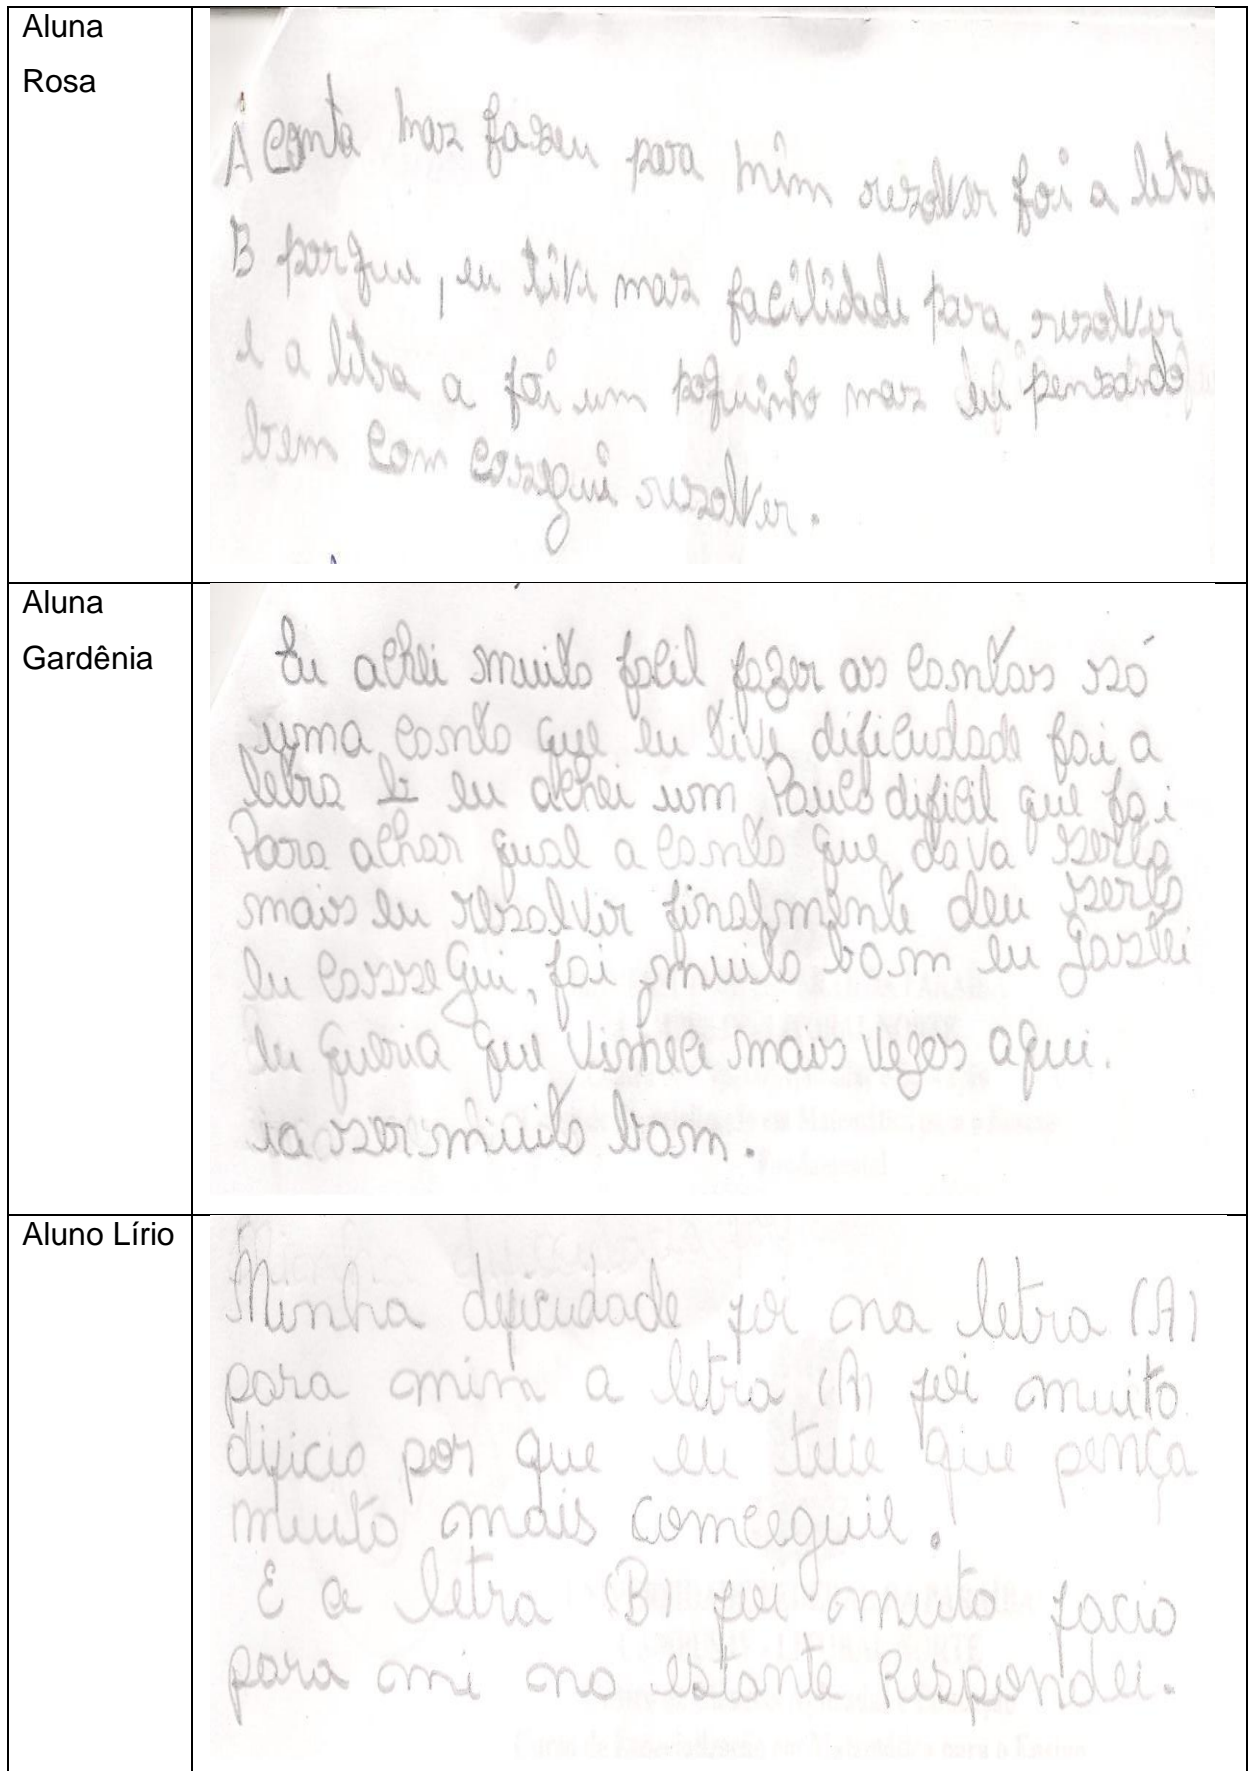 Aluna
Rosa
A conta mas faseu para mim resolver foi a letra
B porque, eu tive mas facilidade para resolver
e a letra a foi um poquinho mas eu pensando
bem com consegui resolver.
Aluna
Gardênia
Eu achei muito facil fazer as contas só
uma conta que eu tive dificudade foi a
letra b eu achei um Pouco dificil que foi
Para achar qual a conta que dava serta
mais eu resolvir finalmente deu serto
eu conssegui, foi muito bom eu gostei
eu queria que vinhece mais vezes aqui.
ia ser muito bom.
Aluno Lírio
Minha dificudade foi na letra (A)
para mim a letra (A) foi muito
dificio por que eu tive que pença
muito mais comceguie.
E a letra (B) foi muito facio
para mi no estante Respondei.